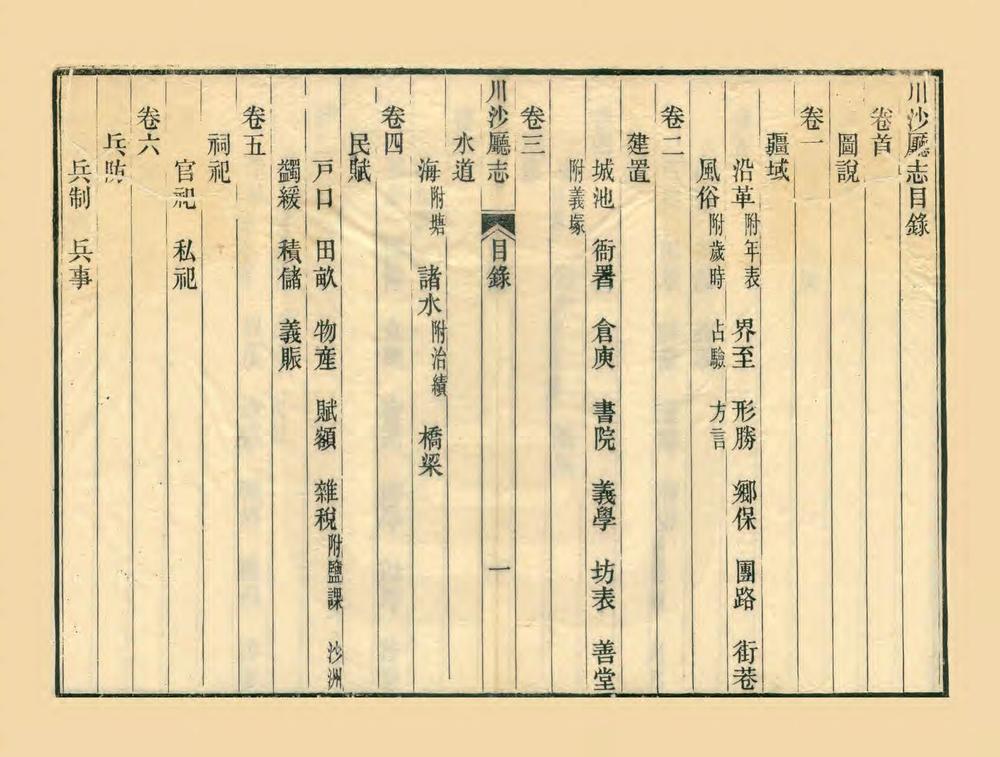 川沙廳志目錄
卷首
圖說
卷一
疆域
沿革附年表 界至 形勝 鄉保 團路 街巷
風俗附歲時 占驗 方言
卷二
建置
城池 衙署 倉庾 書院 義學 坊表 善堂
附義塚
卷三
川沙廳志 目錄 一
水道
海附塘 諸水附治績 橋梁
卷四
民賦
戶口 田畝 物產 賦額 雜稅附鹽課 沙洲
蠲緩 積儲 義賑
卷五
祠祀
官祀 私祀
卷六
兵防
兵制 兵事